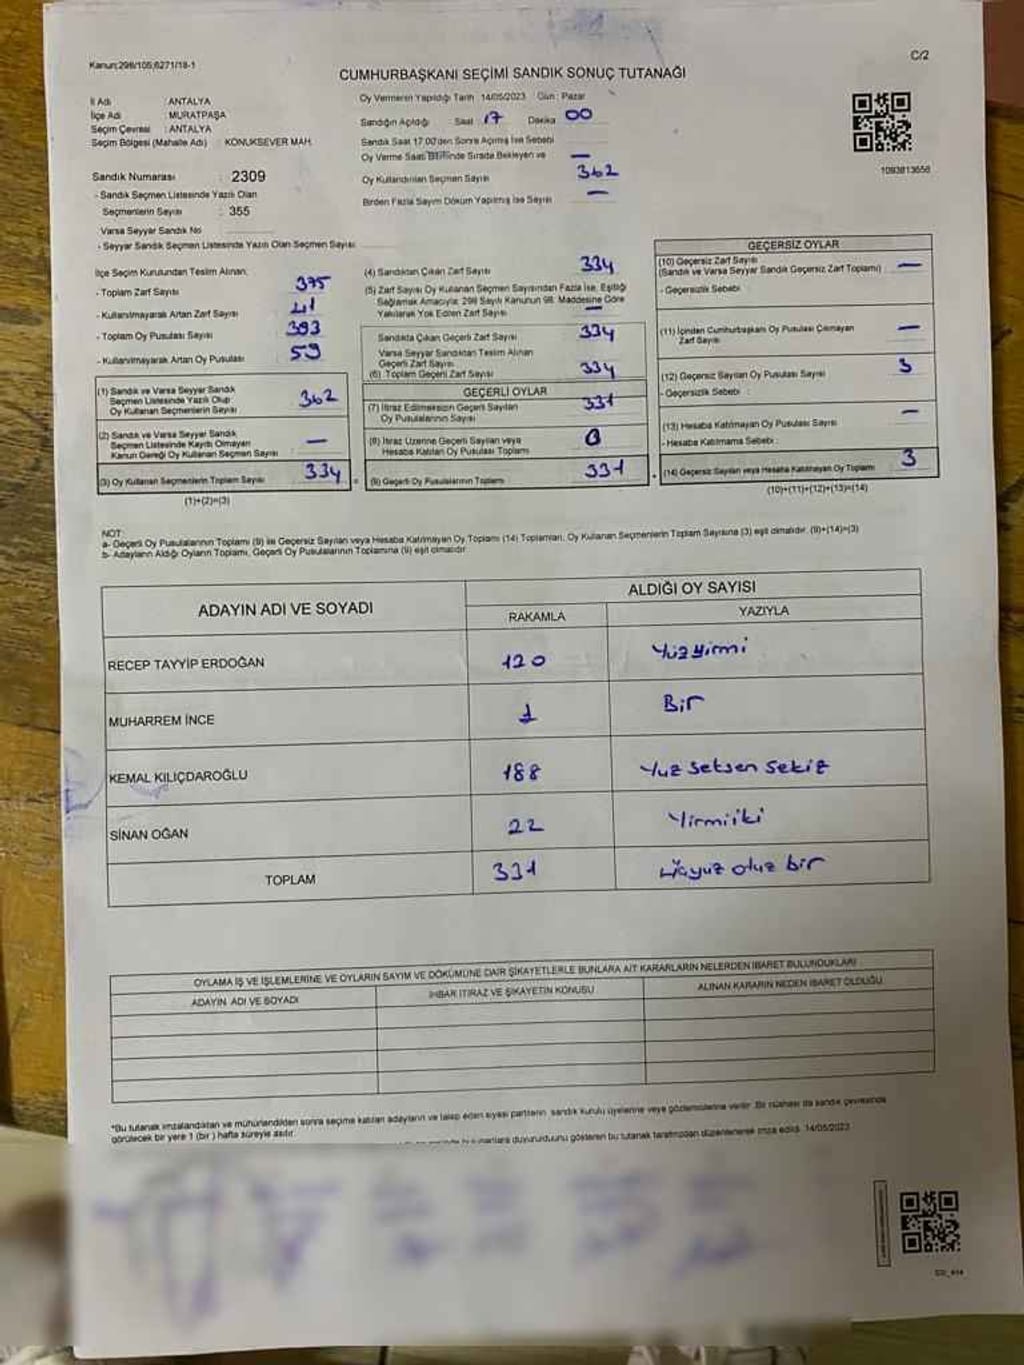 Kanun:298/105;6271/18-1
C/2
CUMHURBAŞKANI SEÇİMİ SANDIK SONUÇ TUTANAĞI
İl Adı : ANTALYA
İlçe Adı : MURATPAŞA
Seçim Çevresi : ANTALYA
Seçim Bölgesi (Mahalle Adı) : KONUKSEVER MAH.
Sandık Numarası : 2309
- Sandık Seçmen Listesinde Yazılı Olan
Seçmenlerin Sayısı : 355
Varsa Seyyar Sandık No
- Seyyar Sandık Seçmen Listesinde Yazılı Olan Seçmen Sayısı
Oy Vermenin Yapıldığı Tarih 14/05/2023 Gün : Pazar
Sandığın Açıldığı : Saat 17 Dakika 00
Sandık Saat 17.00'den Sonra Açılmış İse Sebebi
Oy Verme Saati Bitiminde Sırada Bekleyen ve —
Oy Kullandırılan Seçmen Sayısı 362
Birden Fazla Sayım Döküm Yapılmış İse Sayısı —
1093813658
İlçe Seçim Kurulundan Teslim Alınan;
- Toplam Zarf Sayısı 375
- Kullanılmayarak Artan Zarf Sayısı 41
- Toplam Oy Pusulası Sayısı 393
- Kullanılmayarak Artan Oy Pusulası 59
(1) Sandık ve Varsa Seyyar Sandık
Seçmen Listesinde Yazılı Olup
Oy Kullanan Seçmenlerin Sayısı 362
(2) Sandık ve Varsa Seyyar Sandık
Seçmen Listesinde Kayıtlı Olmayan
Kanun Gereği Oy Kullanan Seçmen Sayısı —
(3) Oy Kullanan Seçmenlerin Toplam Sayısı 334
(1)+(2)=(3)
(4) Sandıktan Çıkan Zarf Sayısı 334
(5) Zarf Sayısı Oy Kullanan Seçmen Sayısından Fazla İse, Eşitliği
Sağlamak Amacıyla; 298 Sayılı Kanunun 98. Maddesine Göre
Yakılarak Yok Edilen Zarf Sayısı —
Sandıkta Çıkan Geçerli Zarf Sayısı 334
Varsa Seyyar Sandıktan Teslim Alınan
Geçerli Zarf Sayısı
(6) Toplam Geçerli Zarf Sayısı 334
GEÇERLİ OYLAR
(7) İtiraz Edilmeksizin Geçerli Sayılan
Oy Pusulalarının Sayısı 331
(8) İtiraz Üzerine Geçerli Sayılan veya
Hesaba Katılan Oy Pusulası Toplamı 0
(9) Geçerli Oy Pusulalarının Toplamı 331
GEÇERSİZ OYLAR
(10) Geçersiz Zarf Sayısı
(Sandık ve Varsa Seyyar Sandık Geçersiz Zarf Toplamı) —
- Geçersizlik Sebebi
(11) İçinden Cumhurbaşkanı Oy Pusulası Çıkmayan
Zarf Sayısı —
(12) Geçersiz Sayılan Oy Pusulası Sayısı 3
- Geçersizlik Sebebi :
(13) Hesaba Katılmayan Oy Pusulası Sayısı —
- Hesaba Katılmama Sebebi :
(14) Geçersiz Sayılan veya Hesaba Katılmayan Oy Toplamı 3
(10)+(11)+(12)+(13)=(14)
NOT:
a- Geçerli Oy Pusulalarının Toplamı (9) ile Geçersiz Sayılan veya Hesaba Katılmayan Oy Toplamı (14) Toplamları, Oy Kullanan Seçmenlerin Toplam Sayısına (3) eşit olmalıdır. (9)+(14)=(3)
b- Adayların Aldığı Oyların Toplamı, Geçerli Oy Pusulalarının Toplamına (9) eşit olmalıdır.
ADAYIN ADI VE SOYADI
ALDIĞI OY SAYISI
RAKAMLA YAZIYLA
RECEP TAYYİP ERDOĞAN 120 Yüzyirmi
MUHARREM İNCE 1 Bir
KEMAL KILIÇDAROĞLU 188 Yuz seksen sekiz
SİNAN OĞAN 22 Yirmiiki
TOPLAM 331 üçyuz otuz bir
OYLAMA İŞ VE İŞLEMLERİNE VE OYLARIN SAYIM VE DÖKÜMÜNE DAİR ŞİKAYETLERLE BUNLARA AİT KARARLARIN NELERDEN İBARET BULUNDUKLARI
ADAYIN ADI VE SOYADI İHBAR İTİRAZ VE ŞİKAYETİN KONUSU ALINAN KARARIN NEDEN İBARET OLDUĞU
*Bu tutanak imzalandıktan ve mühürlendikten sonra seçime katılan adayların ve talep eden siyasi partilerin sandık kurulu üyelerine veya gözlemcilerine verilir. Bir nüshası da sandık çevresinde
görülecek bir yere 1 (bir) hafta süreyle asılır.
duyurulduğunu gösteren bu tutanak tarafımızdan düzenlenerek imza edildi. 14/05/2023